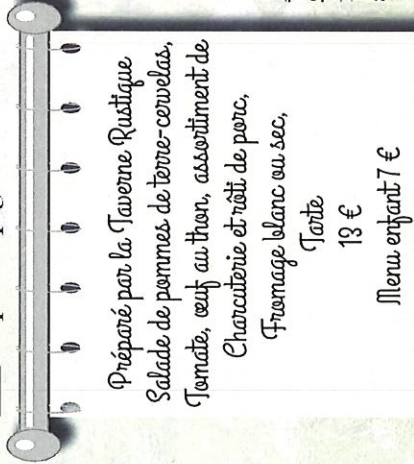 Préparé par la Taverne Rustique
Salade de pommes de terre-cervelas,
Tomate, œuf au thon, assortiment de
Charcuterie et rôti de porc,
Fromage blanc ou sec,
Tarte
13 €
Menu enfant 7 €